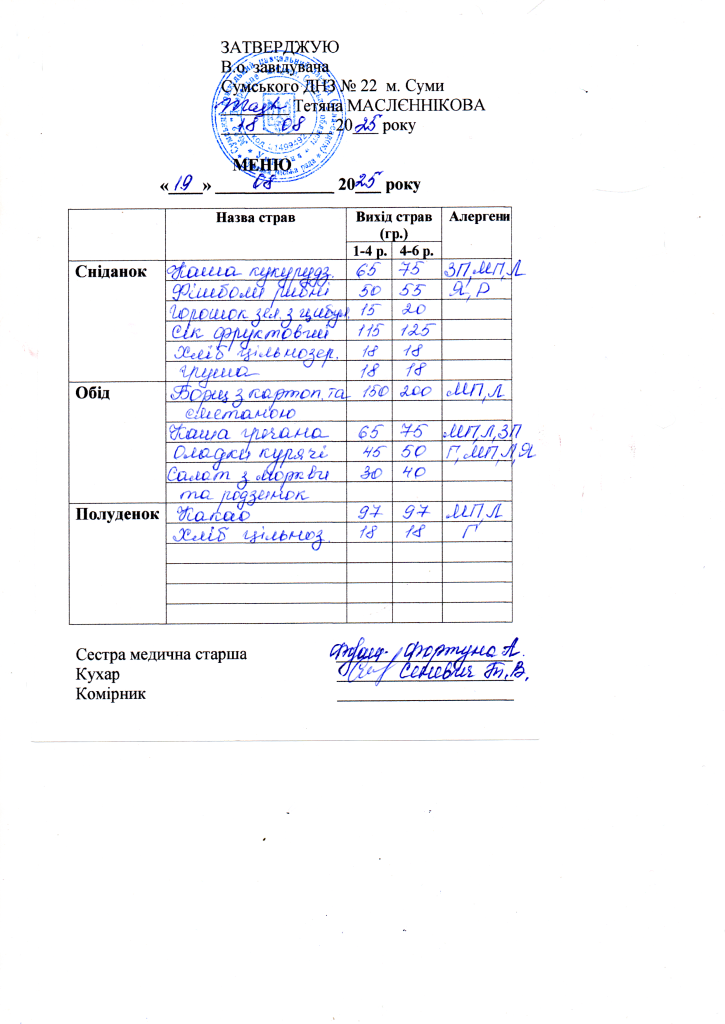 ЗАТВЕРДЖУЮ
В.о. завідувача
Сумського ДНЗ № 22 м. Суми
Тетяна МАСЛЄННІКОВА
18 08 2025 року
МЕНЮ
«19» 08 2025 року
Назва страв Вихід страв (гр.) Алергени
1-4 р. 4-6 р.
Сніданок Каша кукурудз. 65 75 ЗП, МП, Л
Фішболи рибні 50 55 Я, Р
Горошок зел. з цибул 15 20
Сік фруктовий 115 125
Хліб цільнозер. 18 18
груша 18 18
Обід Борщ з картоп. та 150 200 МП, Л
сметаною
Каша гречана 65 75 МП, Л, ЗП
Оладки курячі 45 50 Г, МП, Л, Я
Салат з моркви 30 40
та родзинок
Полуденок Какао 97 97 МП, Л
Хліб цільноз. 18 18 Г
Сестра медична старша Фортуна А.
Кухар Сенович Т.В.
Комірник